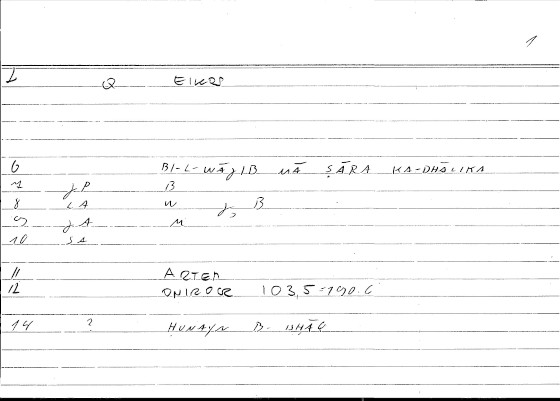 1
1 Q EIKOS
6 BI-L-WĀJIB MĀ ṢĀRA KA-DHĀLIKA
7 JP B
8 LA W J, B
9 JA M
10 SA
11 ARTEM
12 ONIROCR 103,5 = 190.6
14 ? HUNAYN B. ISHĀQ